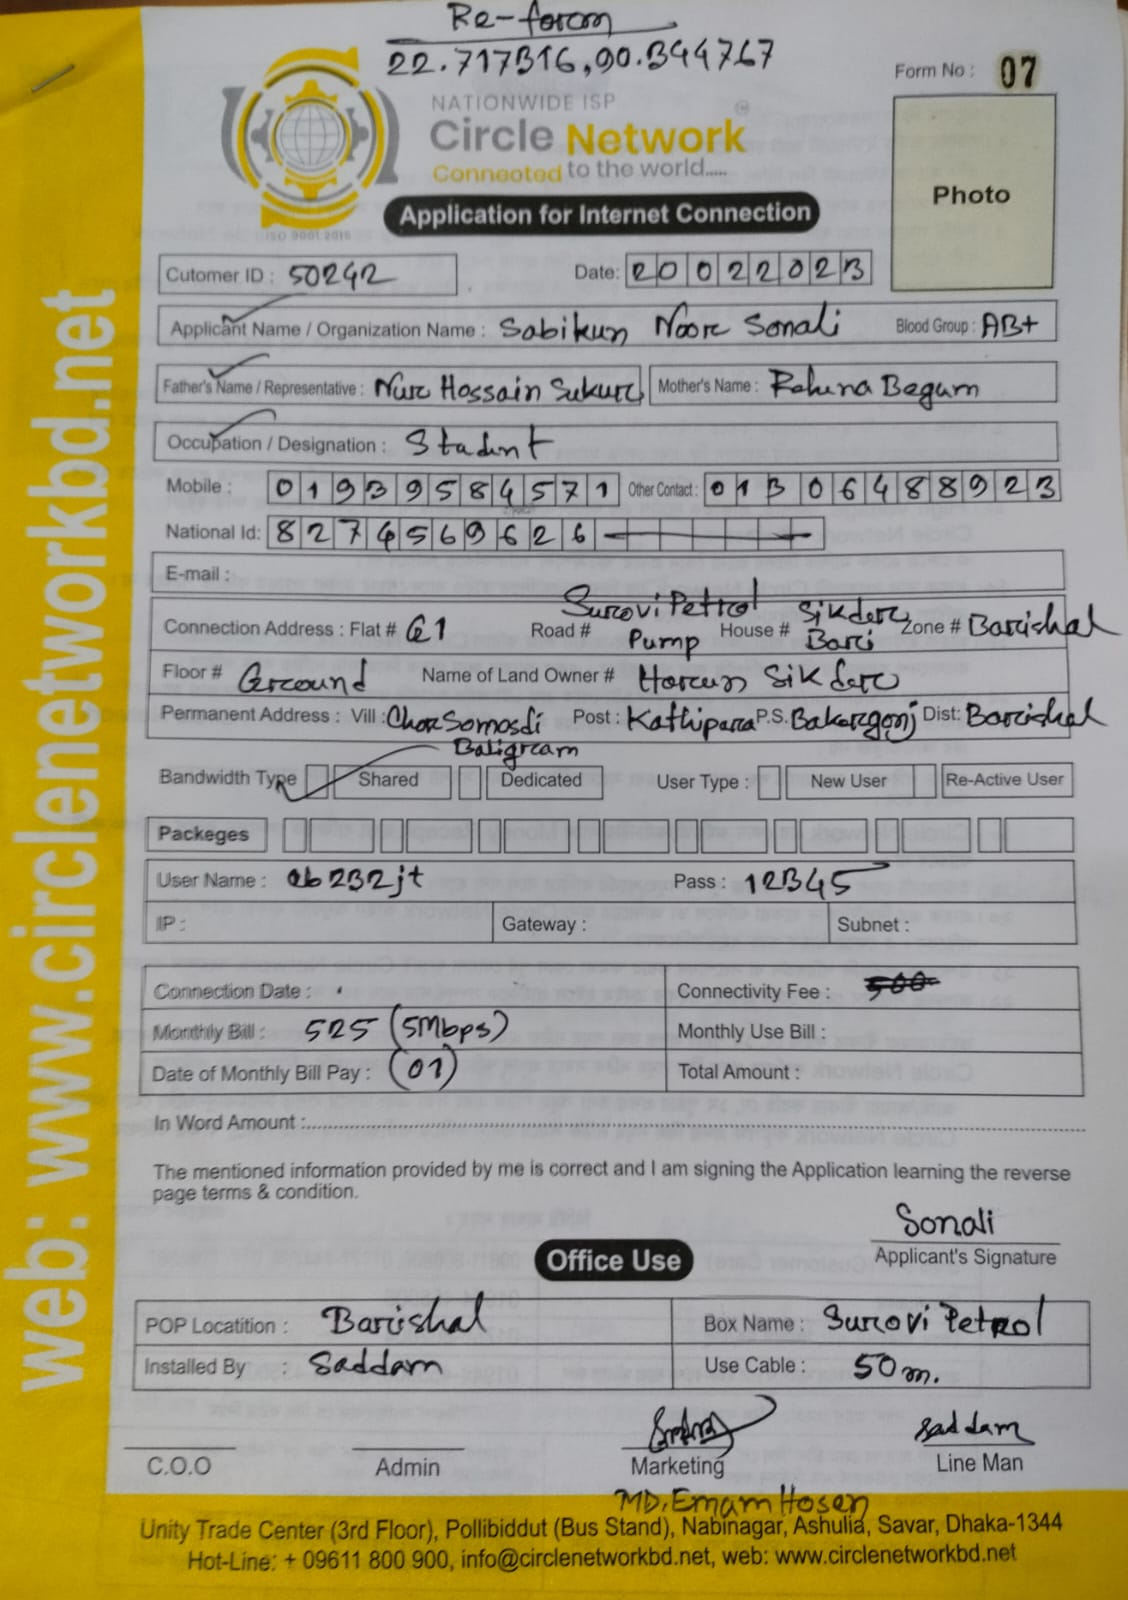 Re-form
22.717316,90.344767
Form No : 07
NATIONWIDE ISP
Circle Network
Connected to the world.....
ISO 9001 2015
Photo
Application for Internet Connection
Cutomer ID : 50242 Date: 20022023
Applicant Name / Organization Name : Sabikun Noor Sonali Blood Group : AB+
Father's Name / Representative : Nur Hossain Sukur Mother's Name : Rahina Begum
Occupation / Designation : Stadnt
Mobile : 01939584571 Other Contact : 01306488923
National Id: 8274569626
E-mail :
Connection Address : Flat # G1 Road # Surovi Petrol Pump House # Sikder Bari Zone # Barishal
Floor # Ground Name of Land Owner # Horun Sikder
Permanent Address : Vill : Chor Somosdi Post : Kathipara P.S. Bakorgonj Dist: Barishal
Baligram
Bandwidth Type Shared Dedicated User Type : New User Re-Active User
Packeges
User Name : ab232jt Pass : 12345
IP : Gateway : Subnet :
Connection Date : Connectivity Fee : 500
Monthly Bill : 525 (5Mbps) Monthly Use Bill :
Date of Monthly Bill Pay : (01) Total Amount :
In Word Amount :
The mentioned information provided by me is correct and I am signing the Application learning the reverse
page terms & condition.
Sonali
Applicant's Signature
Office Use
POP Locatition : Barishal Box Name : Surovi Petrol
Installed By : Saddam Use Cable : 50m.
Saddam
C.O.O Admin Marketing Line Man
MD. Emam Hosen
Unity Trade Center (3rd Floor), Pollibiddut (Bus Stand), Nabinagar, Ashulia, Savar, Dhaka-1344
Hot-Line: + 09611 800 900, info@circlenetworkbd.net, web: www.circlenetworkbd.net
web: www.circlenetworkbd.net